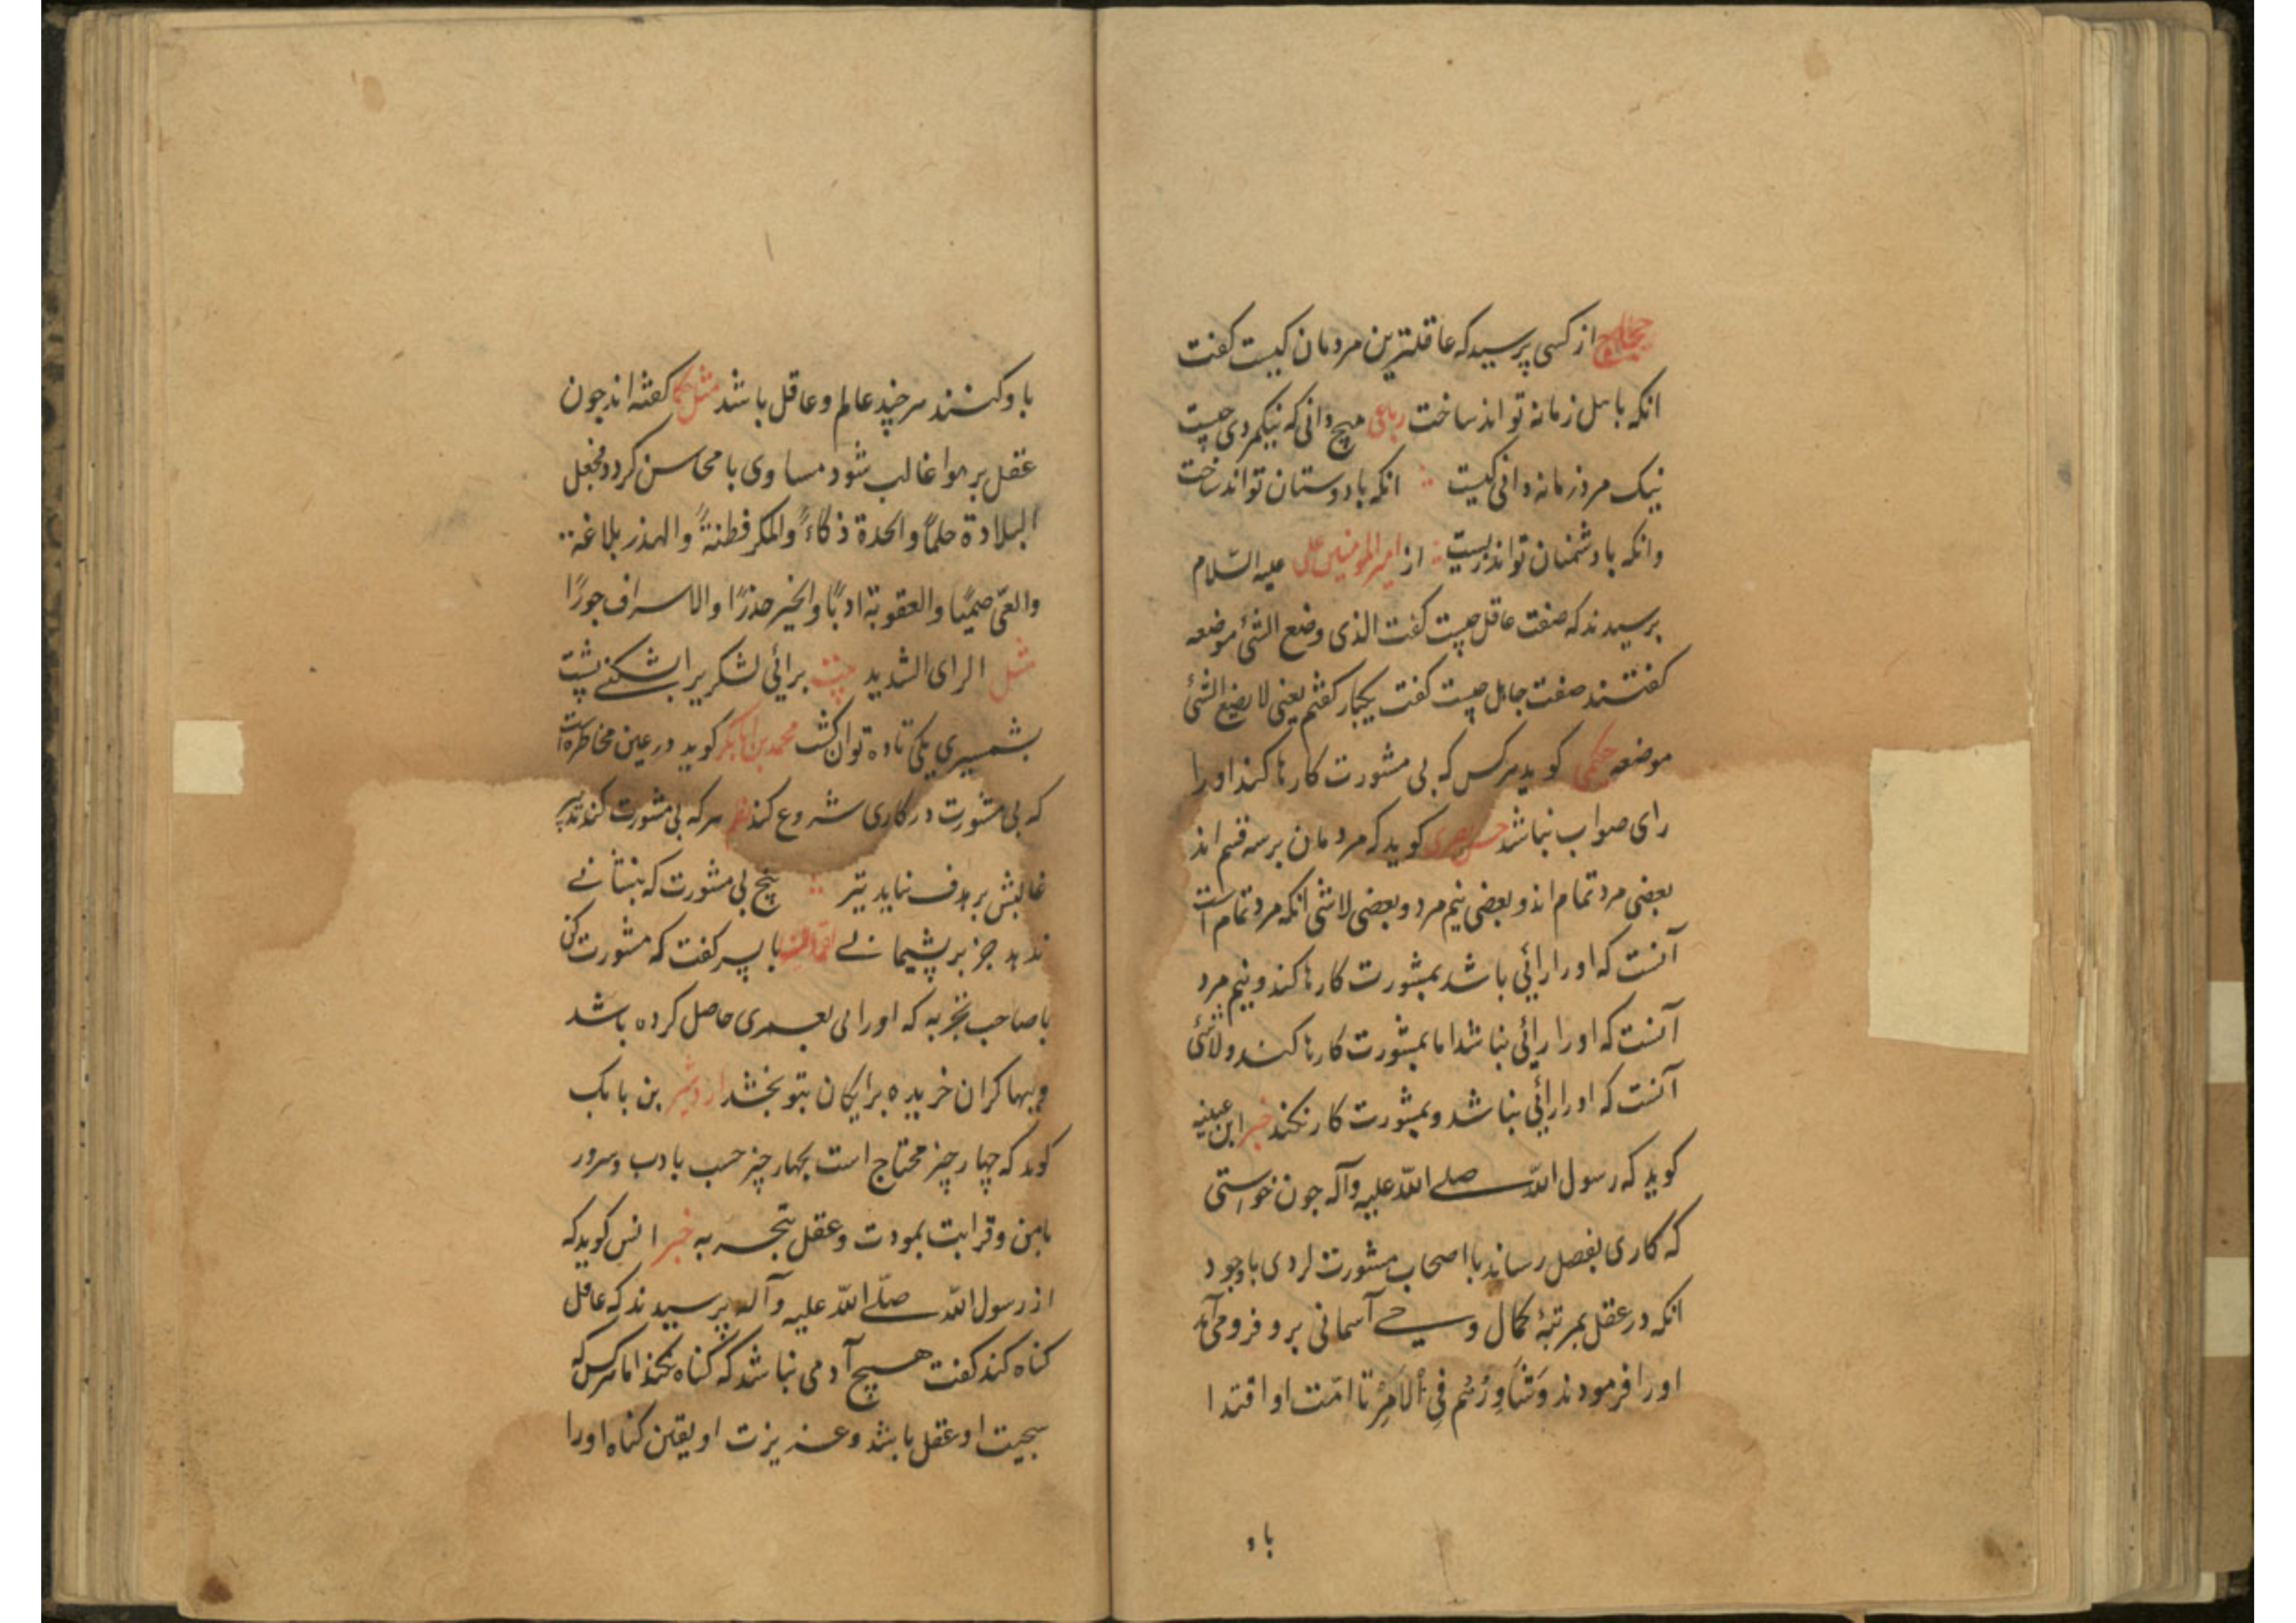 حجاج از کسی پرسید که عاقلترین مردمان کیست کفت
انکه باهل زمانه تواند ساخت رباعی هیچ دانی که نیکمردی چیست
نیک مرد زمانه دانی کیست انکه با دوستان تواند ساخت
وانکه با دشمنان تواند زیست از امیرالمومنین علی علیه السّلام
پرسیدند که صفت عاقل چیست کفت الذی وضع الشئ موضعه
کفتند صفت جاهل چیست کفت یکبار کفتم یعنی لا یضع الشئ
موضعه حکمی کوید هرکس که بی مشورت کارها کند او را
رای صواب نباشد حسن بصری کوید که مردمان بر سه قسم اند
بعضی مرد تمام اند و بعضی نیم مرد و بعضی لاشی انکه مرد تمام است
آنست که او را رائی باشد بمشورت کارها کند و نیم مرد
آنست که او را رائی نباشد اما بمشورت کارها کند و لاشئ
آنست که او را رائی نباشد و بمشورت کار نکند خبر ابن عیینه
کوید که رسول اللّه صلی اللّه علیه وآله جون خواستی
که کاری بفصل رساند با اصحاب مشورت کردی با وجود
انکه در عقل بمرتبهٔ کمال وحی آسمانی برو فرو می آمد
او را فرمودند وَشَاوِرْهُم فِی الْاَمْرِ تا امّت او اقتدا
باو
باو کنند هرچند عالم و عاقل باشد مثل حکما کفته اند جون
عقل بر هوا غالب شود مساوی با محاسن کردد فجعل
البلادة حلمًا والحدة ذکاءً والمکر فطنةً والهذر بلاغه
والعّی صمیًا والعقوبة ادبًا والخبر حذرًا والاسراف جورًا
مثل الرای الشدید برائی لشکریرا بشکنی پشت
بشمسیری یکی تا ده توان کشت محمد بن ابابکر کوید در عین مخاطره است
که بی مشورت در کاری شروع کند نظم هرکه بی مشورت کند تدبیر
غالبش بر هدف نیاید تیر بیخ بی مشورت که بنشانی
ندهد جز بر پشیمانی با پسر کفت که مشورت کن
با صاحب تجربه که او رایی بعمری حاصل کرده باشد
وببها کران خریده برایکان بتو بخشد اردشیر بن بابک
کوید که چهار چیز محتاج است بچهار چیز حسب بادب و سرور
بامن و قرابت بمودت و عقل بتجربه خبر انس کوید که
از رسول اللّه صلّی اللّه علیه وآله پرسیدند که عاقل
کناه کند کفت هیچ آدمی نباشد که کناه نکند اما هرکس که
سجیت او عقل باشد و عزیزت او یقین کناه او را